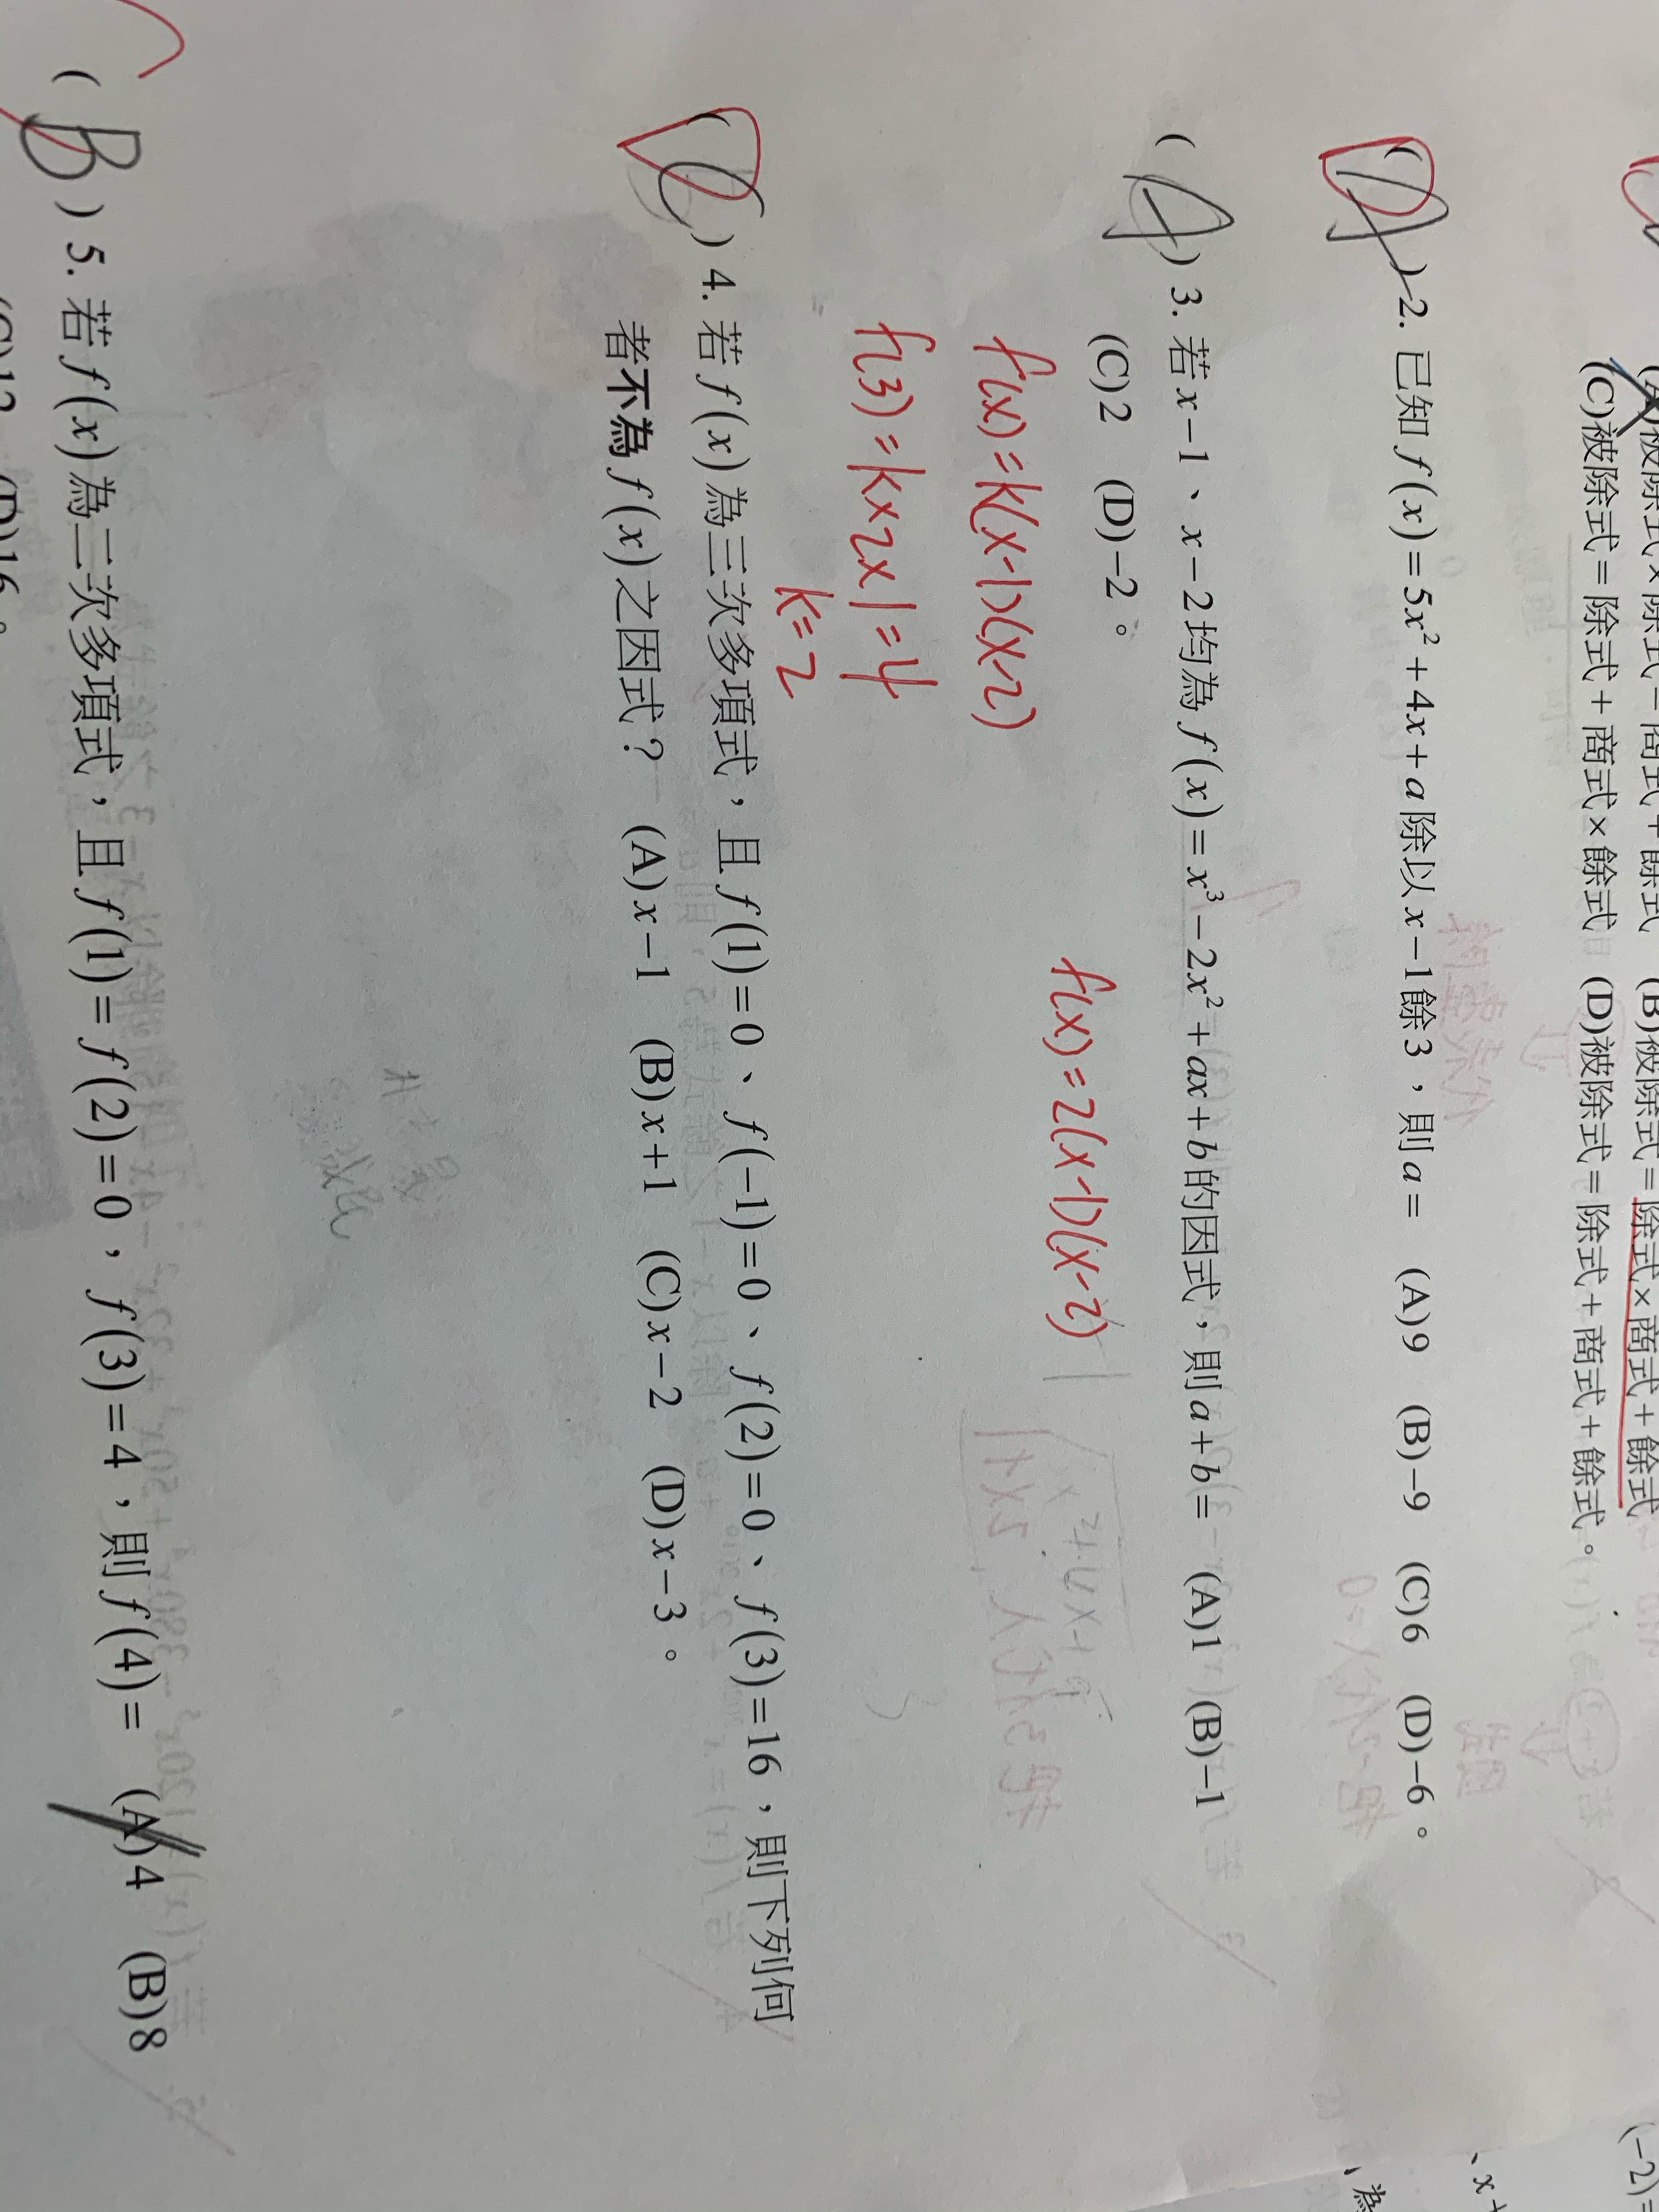 被除式×除式=商式+餘式 (B)被除式=除式×商式+餘式
(C)被除式=除式+商式×餘式 (D)被除式=除式+商式+餘式。
(A) 2. 已知 f(x)=5x²+4x+a 除以 x-1 餘 3，則 a= (A)9 (B)-9 (C)6 (D)-6。
(A) 3. 若 x-1、x-2 均為 f(x)=x³-2x²+ax+b 的因式，則 a+b= (A)1 (B)-1
(C)2 (D)-2。
f(x)=2(x-1)(x-2)
f(x)=k(x-1)(x-2)
f(3)=k×2×1=4
k=2
( ) 4. 若 f(x) 為三次多項式，且 f(1)=0、f(-1)=0、f(2)=0、f(3)=16，則下列何
者不為 f(x) 之因式？ (A)x-1 (B)x+1 (C)x-2 (D)x-3。
(B) 5. 若 f(x) 為二次多項式，且 f(1)=f(2)=0，f(3)=4，則 f(4)= (A)4 (B)8
(C)12 (D)16。